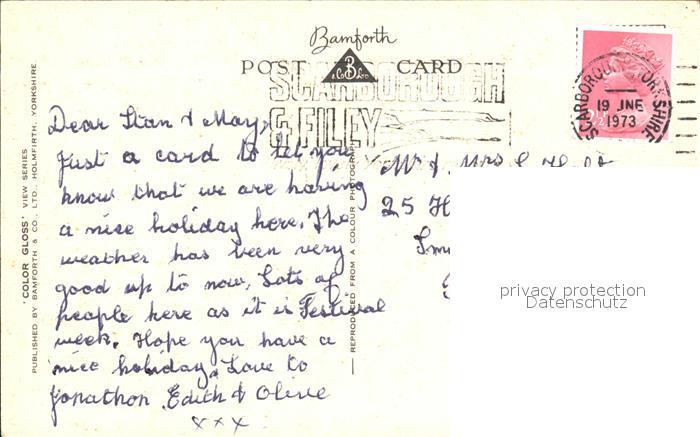 Bamforth
POST CARD
B
& Co Ltd
SCARBOROUGH
& FILEY
SCARBOROUGH YORKSHIRE
19 JNE
1973
Dear Stan & May,
Just a card to let you
know that we are having
a nice holiday here. The
weather has been very
good up to now. Lots of
people here as it is Festival
week. Hope you have a
nice holiday. Love to
Jonathon Edith & Olive
x x x
Mr & Mrs
25 H
Sm
'COLOR GLOSS' VIEW SERIES
PUBLISHED BY BAMFORTH & CO., LTD., HOLMFIRTH, YORKSHIRE
REPRODUCED FROM A COLOUR PHOTOGRAPH
privacy protection
Datenschutz